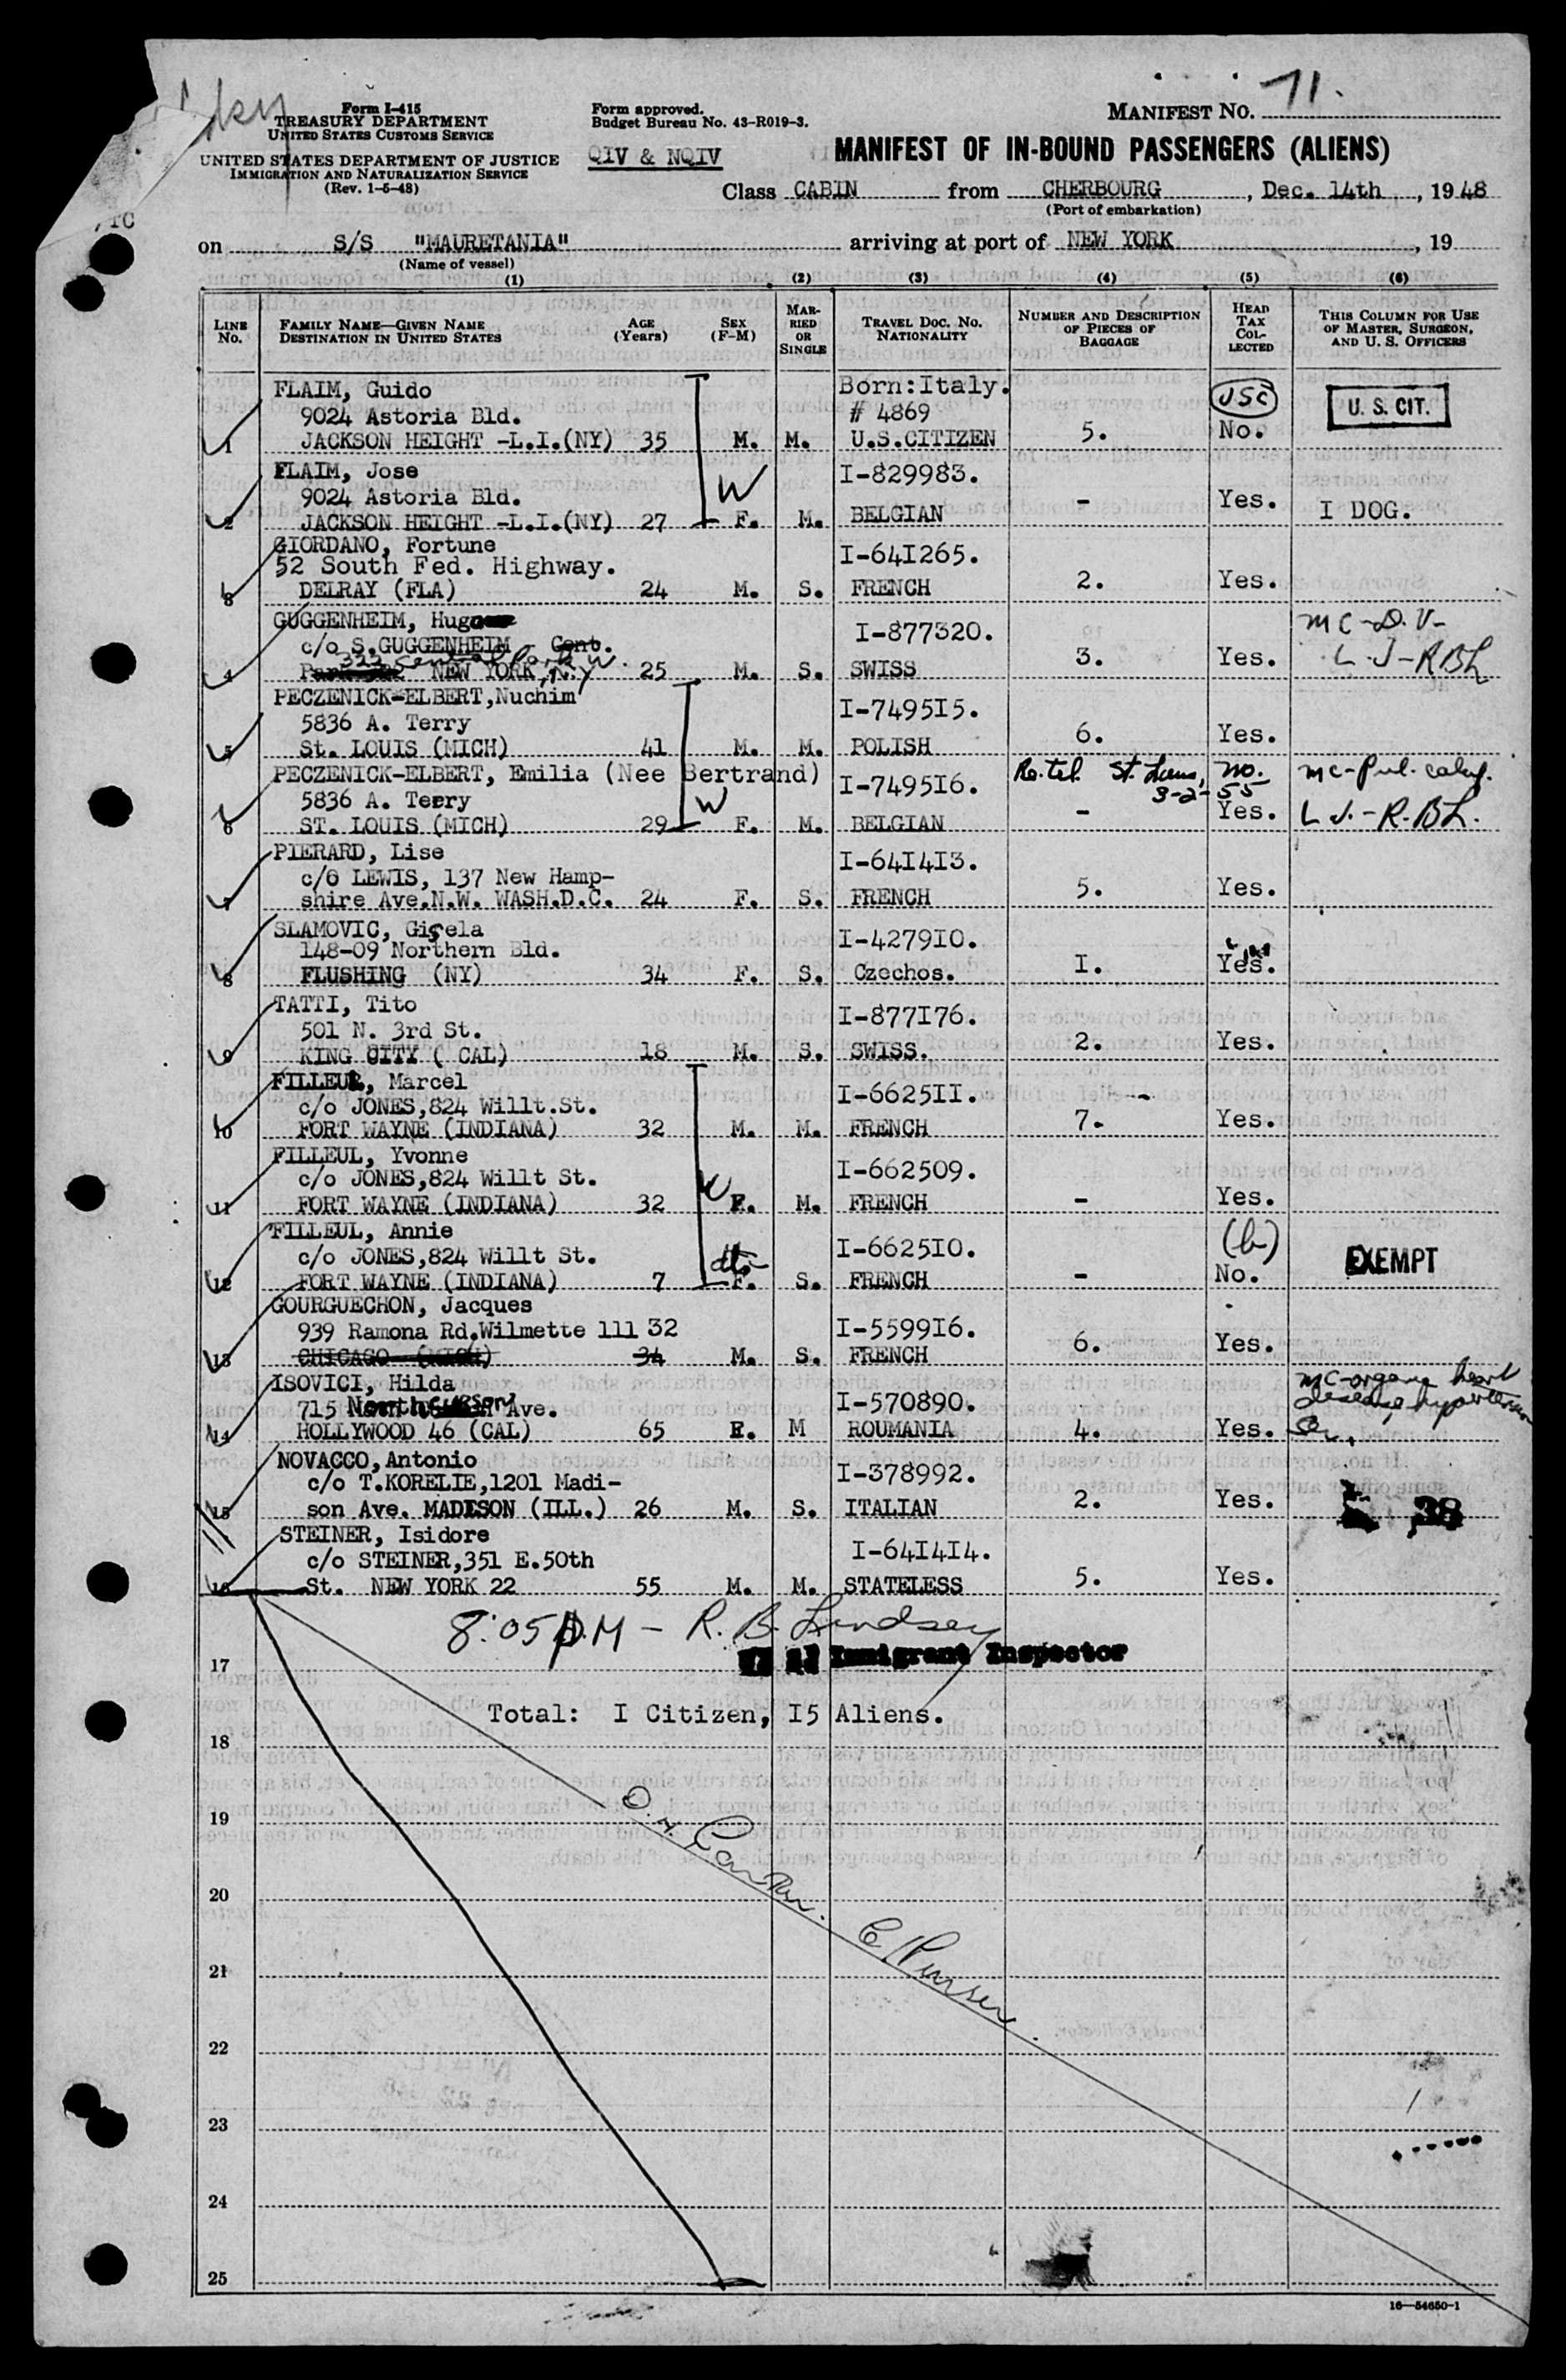 71.
Form I-415
TREASURY DEPARTMENT
UNITED STATES CUSTOMS SERVICE
UNITED STATES DEPARTMENT OF JUSTICE
IMMIGRATION AND NATURALIZATION SERVICE
(Rev. 1-5-48)
Form approved.
Budget Bureau No. 43-R019-3.
QIV & NQIV
MANIFEST NO.
MANIFEST OF IN-BOUND PASSENGERS (ALIENS)
Class CABIN from CHERBOURG, Dec. 14th, 1948
(Port of embarkation)
on S/S "MAURETANIA" arriving at port of NEW YORK, 19
(Name of vessel)
(1) (2) (3) (4) (5) (6)
LINE No. FAMILY NAME—GIVEN NAME DESTINATION IN UNITED STATES AGE (Years) SEX (F-M) MARRIED OR SINGLE TRAVEL DOC. NO. NATIONALITY NUMBER AND DESCRIPTION OF PIECES OF BAGGAGE HEAD TAX COLLECTED THIS COLUMN FOR USE OF MASTER, SURGEON, AND U. S. OFFICERS
FLAIM, Guido Born:Italy. JSC
9024 Astoria Bld. # 4869 U. S. CIT.
1 JACKSON HEIGHT -L.I.(NY) 35 M. M. U.S.CITIZEN 5. No.
FLAIM, Jose I-829983.
9024 Astoria Bld. W
2 JACKSON HEIGHT -L.I.(NY) 27 F. M. BELGIAN - Yes. I DOG.
GIORDANO, Fortune I-64I265.
52 South Fed. Highway.
3 DELRAY (FLA) 24 M. S. FRENCH 2. Yes.
GUGGENHEIM, Hugo I-877320. MC-D.V-
c/o S.GUGGENHEIM - Cent.
323 Central Park W. L.J-RBL
4 NEW YORK, N.Y 25 M. S. SWISS 3. Yes.
PECZENICK-ELBERT,Nuchim I-7495I5.
5836 A. Terry
5 St. LOUIS (MICH) 41 M. M. POLISH 6. Yes.
PECZENICK-ELBERT, Emilia (Nee Bertrand) I-7495I6. Re.tel. St. Louis, no. 3-2-55
5836 A. Teery W
6 ST. LOUIS (MICH) 29 F. M. BELGIAN - Yes. L J.-R.BL.
PIERARD, Lise I-64I4I3.
c/o LEWIS, 137 New Hamp-
7 shire Ave.N.W. WASH.D.C. 24 F. S. FRENCH 5. Yes.
SLAMOVIC, Gisela I-4279I0.
148-09 Northern Bld.
8 FLUSHING (NY) 34 F. S. Czechos. I. Yes.
TATTI, Tito I-877I76.
501 N. 3rd St.
9 KING CITY ( CAL) 18 M. S. SWISS. 2. Yes.
FILLEUL, Marcel I-6625II.
c/o JONES,824 Willt.St.
10 FORT WAYNE (INDIANA) 32 M. M. FRENCH 7. Yes.
FILLEUL, Yvonne I-662509.
c/o JONES,824 Willt St. W
11 FORT WAYNE (INDIANA) 32 F. M. FRENCH - Yes.
FILLEUL, Annie I-6625I0. (b)
c/o JONES,824 Willt St. EXEMPT
12 FORT WAYNE (INDIANA) 7 F. S. FRENCH - No.
GOURGUECHON, Jacques I-5599I6.
939 Ramona Rd.Wilmette 111 32
13 CHICAGO 34 M. S. FRENCH 6. Yes.
ISOVICI, Hilda I-570890. MC-organic heart disease, hypertension
715 North Ave.
14 HOLLYWOOD 46 (CAL) 65 F. M ROUMANIA 4. Yes.
NOVACCO, Antonio I-378992.
c/o T.KORELIE,1201 Madi-
15 son Ave. MADISON (ILL.) 26 M. S. ITALIAN 2. Yes. 38
STEINER, Isidore I-64I4I4.
c/o STEINER,351 E.50th
16 St. NEW YORK 22 55 M. M. STATELESS 5. Yes.
8:05 P.M - R. B. Lindsey
Immigrant Inspector
17
Total: I Citizen, I5 Aliens.
18
19
20
21
22
23
24
25
16—54650-1